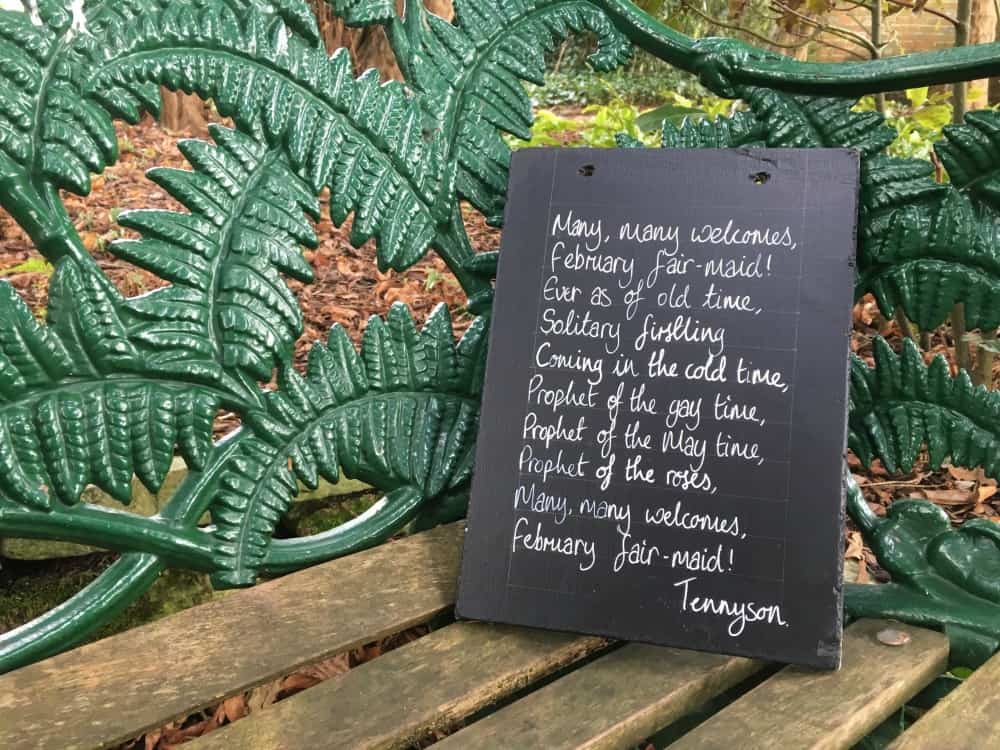 Many, many welcomes,
February fair-maid!
Ever as of old time,
Solitary firstling
Coming in the cold time,
Prophet of the gay time,
Prophet of the May time,
Prophet of the roses,
Many, many welcomes,
February fair-maid!
Tennyson.